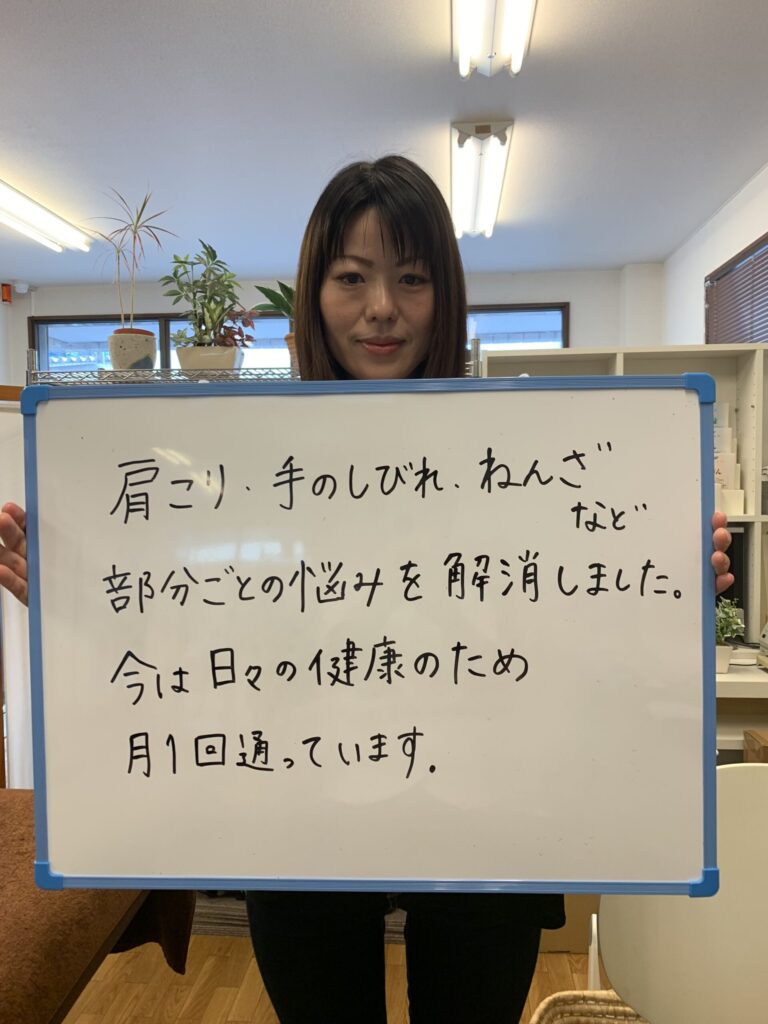 肩こり、手のしびれ、ねんざ
など
部分ごとの悩みを解消しました。
今は日々の健康のため
月1回通っています.